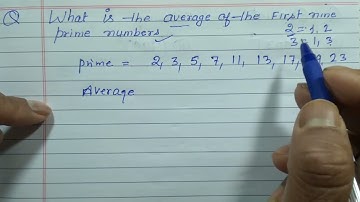 Q What is the average of the First nine
prime numbers
2 = 1, 2
3 = 1, 3
prime = 2, 3, 5, 7, 11, 13, 17, 23
Average